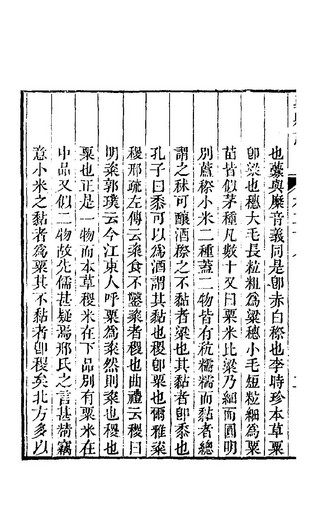 也虋與穈音義同是卽赤白穄也李時珍本草粟
卽粱也穗大毛長粒粗爲粱穗小毛短粒細爲粟
苗皆似茅種凡數十又曰粟米比粱乃細而圓明
別藨穄小米二種蓋二物皆有秔糯糯而黏者總
謂之秫可釀酒穄之不黏者粱也其黏者卽黍也
孔子曰黍可以爲酒謂其黏也稷卽粟也爾雅粢
稷邢疏左傳云粢食不鑿粢者稷也曲禮云稷曰
明粢郭璞云今江東人呼粟爲粢然則粢也稷也
粟也正是一物而本草稷米在下品別有粟米在
中品又似二物故先儒甚疑焉邢氏之言甚精竊
意小米之黏者爲粟其不黏者卽稷矣北方多以